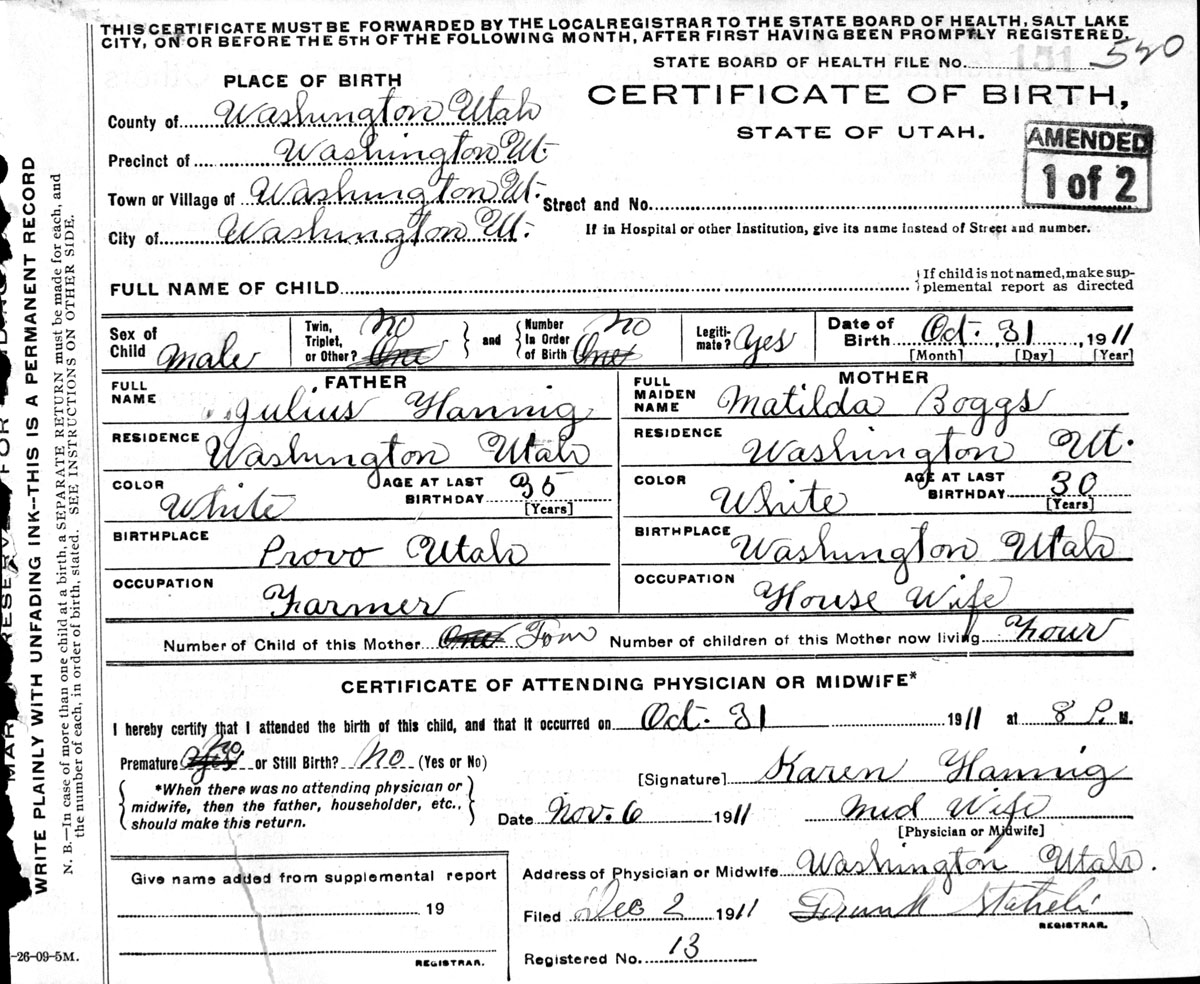 THIS CERTIFICATE MUST BE FORWARDED BY THE LOCAL REGISTRAR TO THE STATE BOARD OF HEALTH, SALT LAKE
CITY, ON OR BEFORE THE 5TH OF THE FOLLOWING MONTH, AFTER FIRST HAVING BEEN PROMPTLY REGISTERED.
STATE BOARD OF HEALTH FILE No. 151 520
PLACE OF BIRTH
CERTIFICATE OF BIRTH,
STATE OF UTAH.
AMENDED
1 of 2
County of Washington Utah
Precinct of Washington Ut
Town or Village of Washington Ut. Street and No.
City of Washington Ut. If in Hospital or other Institution, give its name instead of Street and number.
FULL NAME OF CHILD If child is not named, make sup-
plemental report as directed
Sex of Child Male Twin, Triplet, or Other? No One and Number In Order of Birth No One Legiti-mate? Yes Date of Birth Oct. 31, 1911
[Month] [Day] [Year]
FATHER MOTHER
FULL NAME Julius Hannig FULL MAIDEN NAME Matilda Boggs
RESIDENCE Washington Utah RESIDENCE Washington Ut.
COLOR White AGE AT LAST BIRTHDAY 35 [Years] COLOR White AGE AT LAST BIRTHDAY 30 [Years]
BIRTHPLACE Provo Utah BIRTHPLACE Washington Utah
OCCUPATION Farmer OCCUPATION House Wife
Number of Child of this Mother One Number of children of this Mother now living Four
CERTIFICATE OF ATTENDING PHYSICIAN OR MIDWIFE*
I hereby certify that I attended the birth of this child, and that it occurred on Oct. 31 1911 at 8 P. M.
Premature Yes No or Still Birth? No (Yes or No)
[Signature] Karen Hannig
*When there was no attending physician or
midwife, then the father, householder, etc.,
should make this return.
Date Nov. 6 1911 Mid Wife
[Physician or Midwife]
Address of Physician or Midwife Washington Utah.
Give name added from supplemental report
19
REGISTRAR.
Filed Dec 2 1911 Staheli
REGISTRAR.
Registered No. 13
-26-09-5M.
WRITE PLAINLY WITH UNFADING INK--THIS IS A PERMANENT RECORD
N. B.—In case of more than one child at a birth, a SEPARATE RETURN must be made for each, and
the number of each, in order of birth, stated. SEE INSTRUCTIONS ON OTHER SIDE.